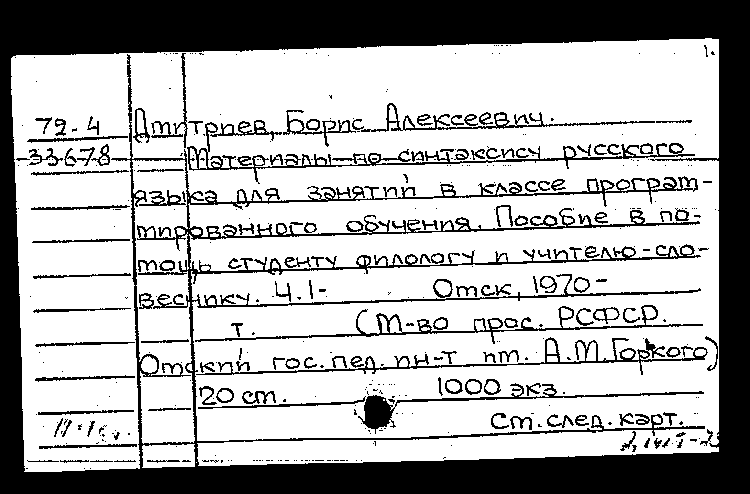 1.
72-4 Дмитриев, Борис Алексеевич.
33678 Материалы по синтаксису русского
языка для занятий в классе програм-
мированного обучения. Пособие в по-
мощь студенту филологу и учителю-сло-
веснику. Ч.1- Омск, 1970-
т. (М-во прос. РСФСР.
Омский гос. пед. ин-т им. А.М.Горького)
20 см. 1000 экз.
См. след. карт.